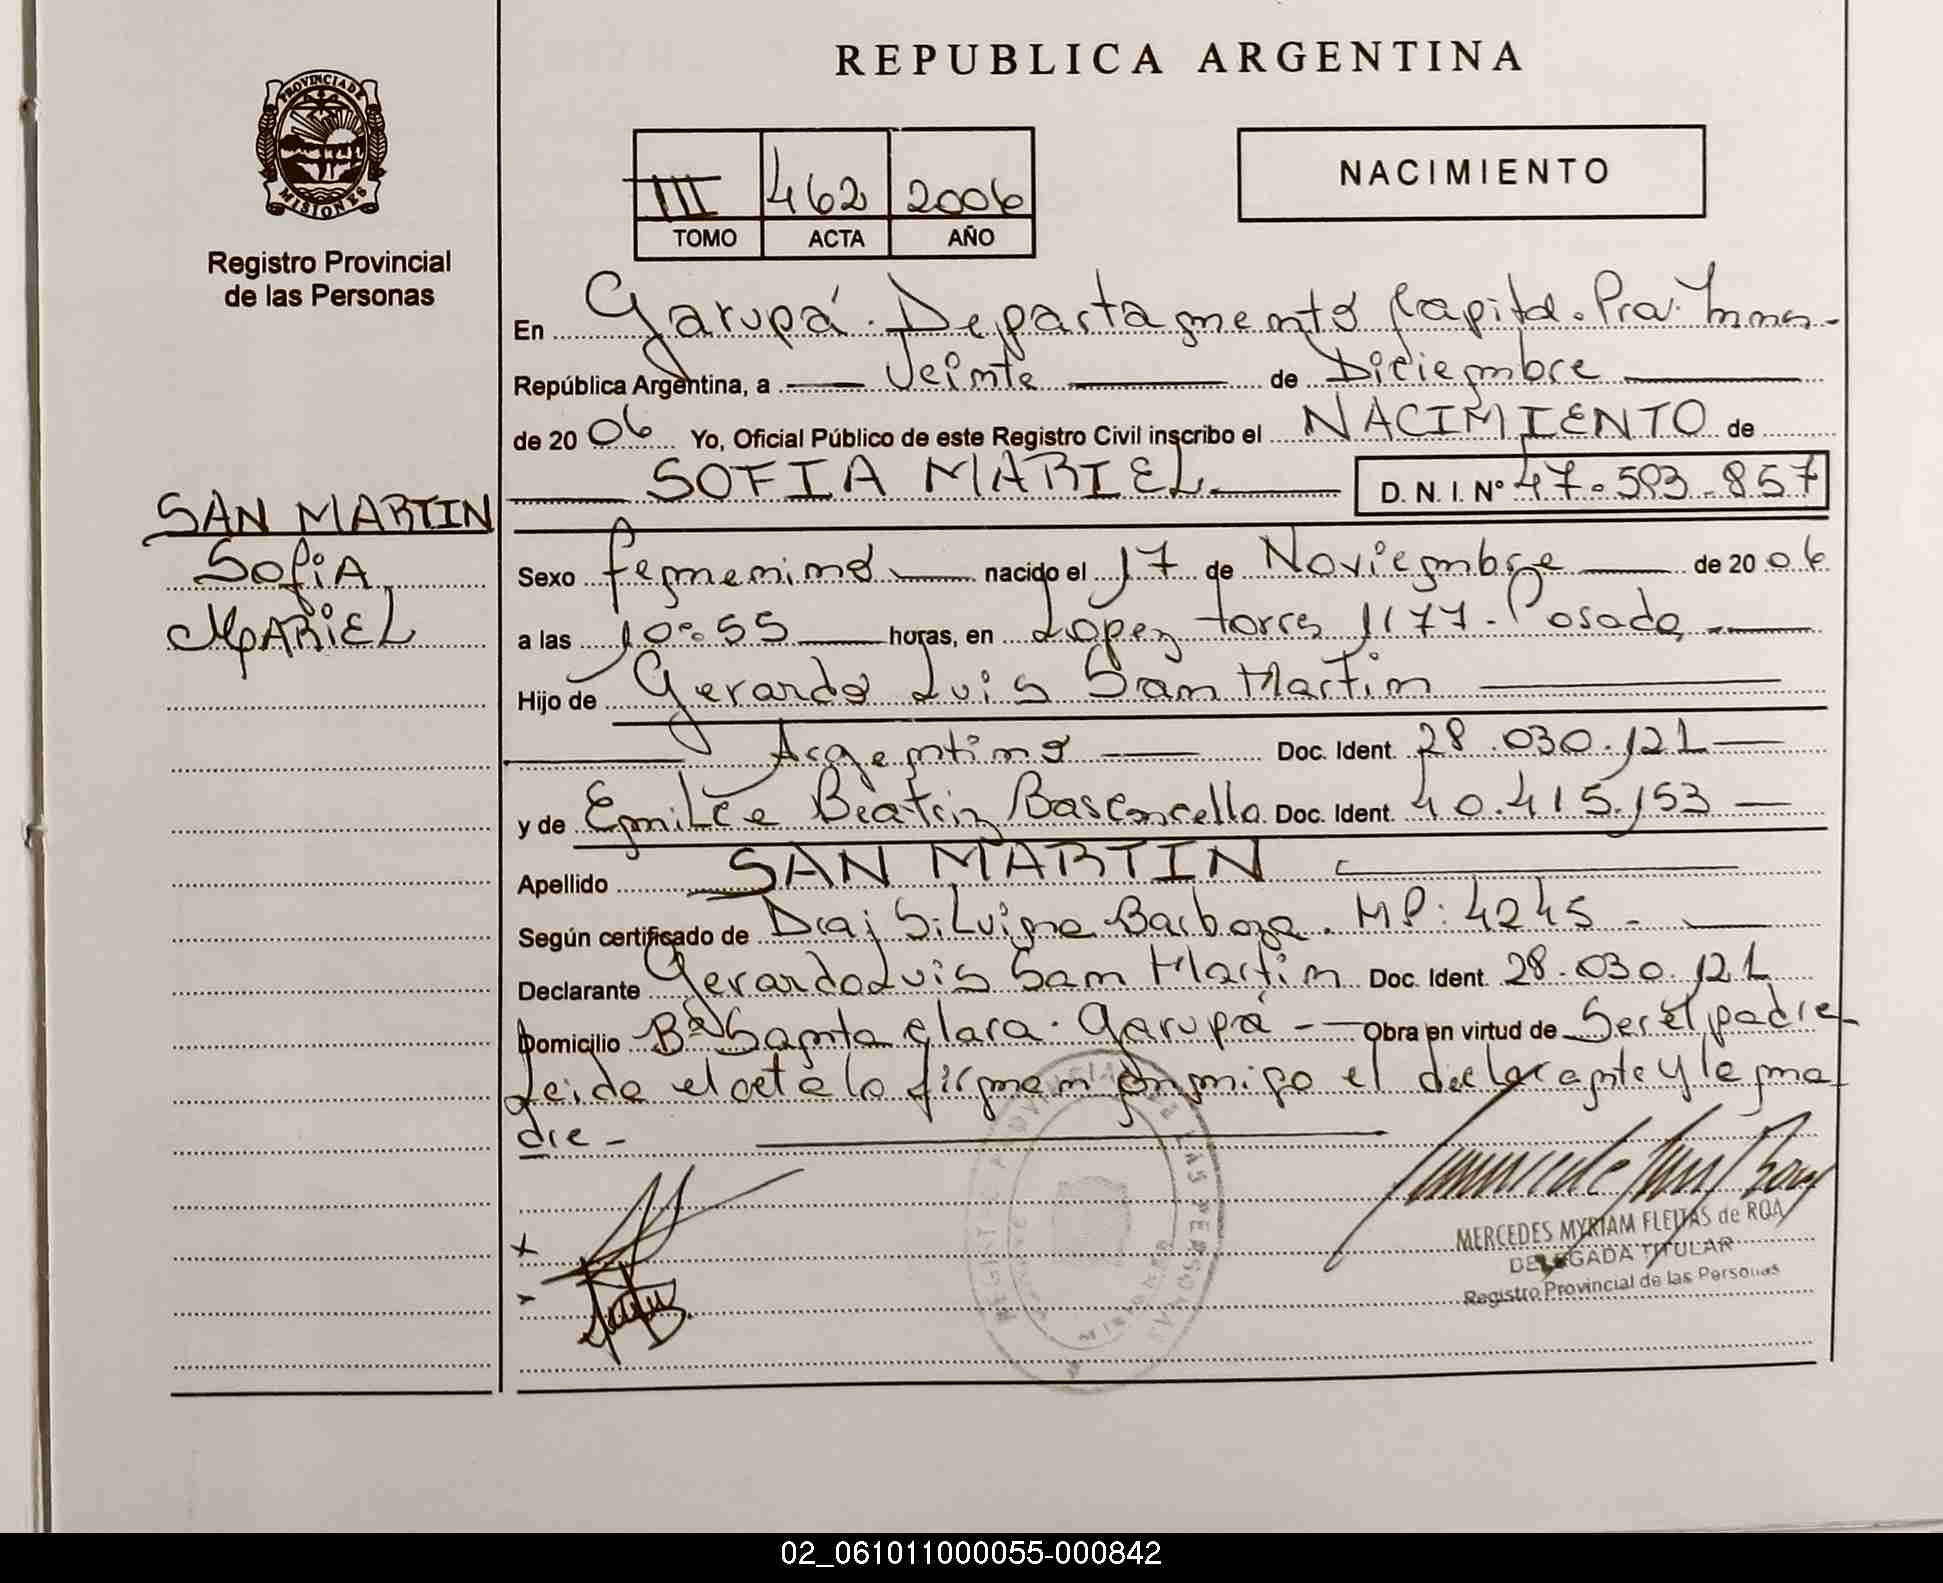 REPUBLICA ARGENTINA
PROVINCIA DE
MISIONES
Registro Provincial
de las Personas
III 462 2006
TOMO ACTA AÑO
NACIMIENTO
En Garupá. Departamento Capital. Pcia. Mnes-
República Argentina, a Veinte de Diciembre
de 2006 Yo, Oficial Público de este Registro Civil inscribo el NACIMIENTO de
SOFIA MARIEL D. N. I. Nº 47.593.857
SAN MARTIN
Sofia
MARIEL
Sexo femenino nacido el 17 de Noviembre de 2006
a las 10:55 horas, en Lopez torres 1177. Posadas
Hijo de Gerardo Luis San Martin
Argentino Doc. Ident. 28.030.121
y de Emilce Beatriz Basconcello Doc. Ident. 40.415.153
Apellido SAN MARTIN
Según certificado de Dra; Silvina Barboza. MP: 4245 -
Declarante Gerardo Luis San Martin Doc. Ident. 28.030.121
Domicilio Bº Santa Clara. Garupá - Obra en virtud de Ser el padre-
Leida el acta la firman conmigo el declarante y la ma-
dre-
REGISTRO PROVINCIAL DE LAS PERSONAS
MISIONES
MERCEDES MYRIAM FLEITAS de ROA
DELEGADA TITULAR
Registro Provincial de las Personas
02_061011000055-000842